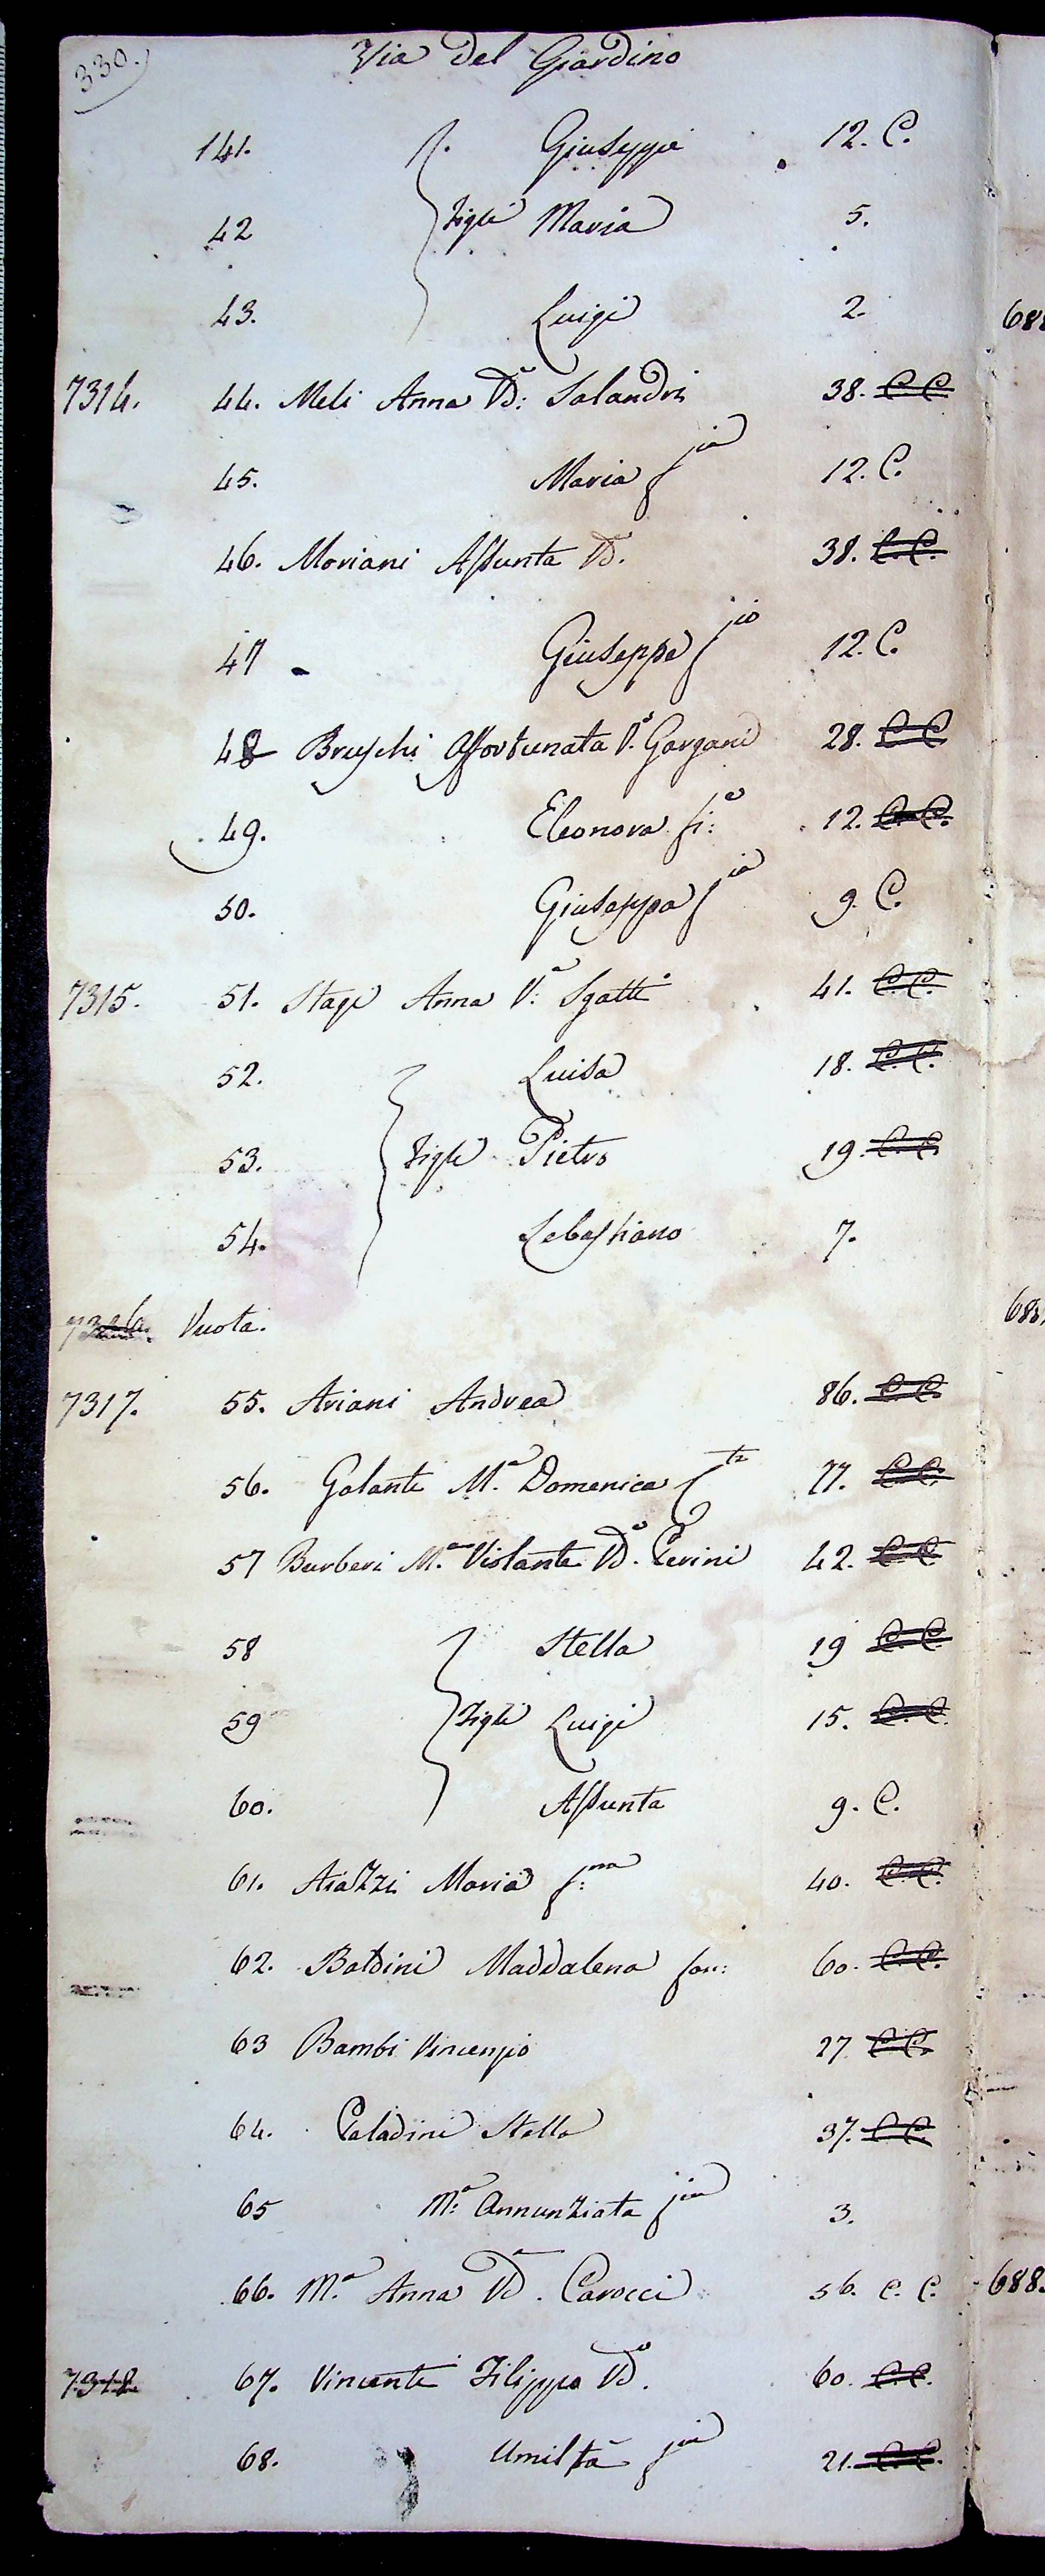 330.
Via del Giardino
141. Giuseppe 12. C.
42 Figli Maria 5.
43. Luigi 2.
7314. 44. Meli Anna Vd.a Salandri 38. C. C.
45. Maria fia 12. C.
46. Moriani Assunta Vd. 38. C. C.
47 Giuseppe fio 12. C.
48 Bruschi Affortunata V.a Gargani 28. C C
49. Eleonora fi:a 12. C. C.
50. Giuseppa fia 9. C.
7315. 51. Stagi Anna V:a Sgatti 41. C. C.
52. Luisa 18. C. C.
53. Figli Pietro 19. C. C
54. Sebastiano 7.
7316. Vuota.
7317. 55. Ariani Andrea 86. C C.
56. Galante M.a Domenica 77. C. C.
57 Barberi M.a Violante Vd.a Perini 42. C C
58 Stella 19 C. C.
59 Figli Luigi 15. C. C.
60. Assunta 9. C.
61. Aiazzi Maria f:na 40. C. C.
62. Baldini Maddalena 60. C. C.
63 Bambi Vincenzio 27. C C.
64. Paladini Stella 37. C C.
65 M:a Annunziata fia 3.
66. M.a Anna Vd.a Carocci 56. C. C.
7318 67. Vincenti Filippo Vd.o 60. C. C.
68. Umiltà fia 21. C. C.
688
688.
688.